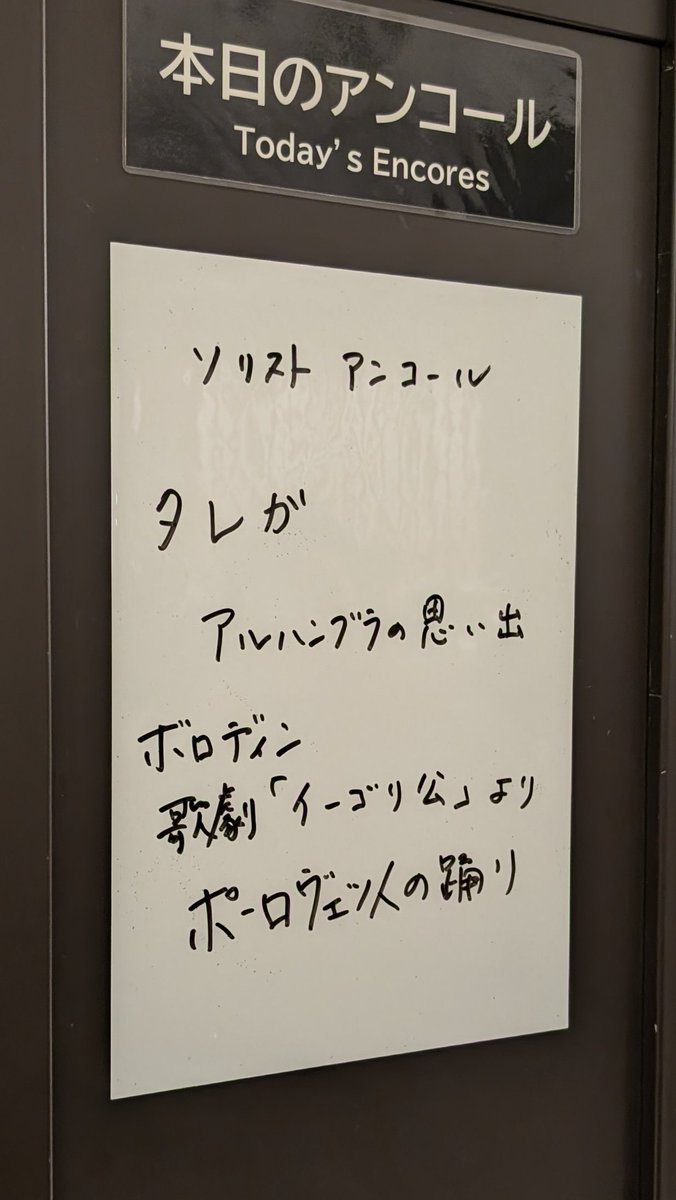 本日のアンコール
Today's Encores
ソリスト アンコール
タレガ
アルハンブラの思い出
ボロディン
歌劇「イーゴリ公」より
ポーロヴェツ人の踊り